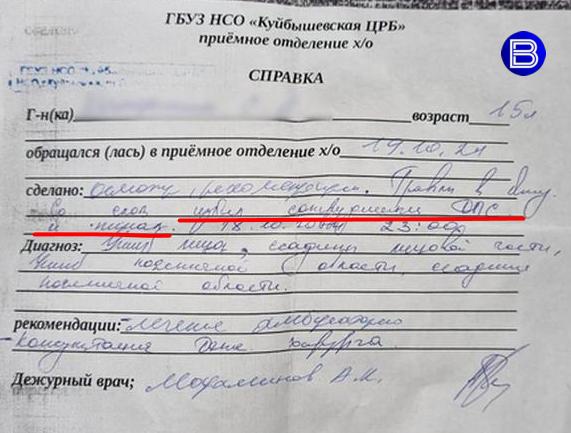 ГБУЗ НСО «Куйбышевская ЦРБ»
приёмное отделение х/о
B
СПРАВКА
ГБУЗ НСО
Г-н(ка) возраст 15л
обращался (лась) в приёмное отделение х/о 19.10.24
сделано: осмотр, рекомендации.
Со слов избил сотрудники ДПС
и 18.10. 23:00
Диагноз: Ушиб лица, ссадины лицовой части,
Ушиб поясничной области, ссадины
поясничной области.
рекомендации: -лечение амбулаторно
-консультация хирурга.
Дежурный врач; А.К.